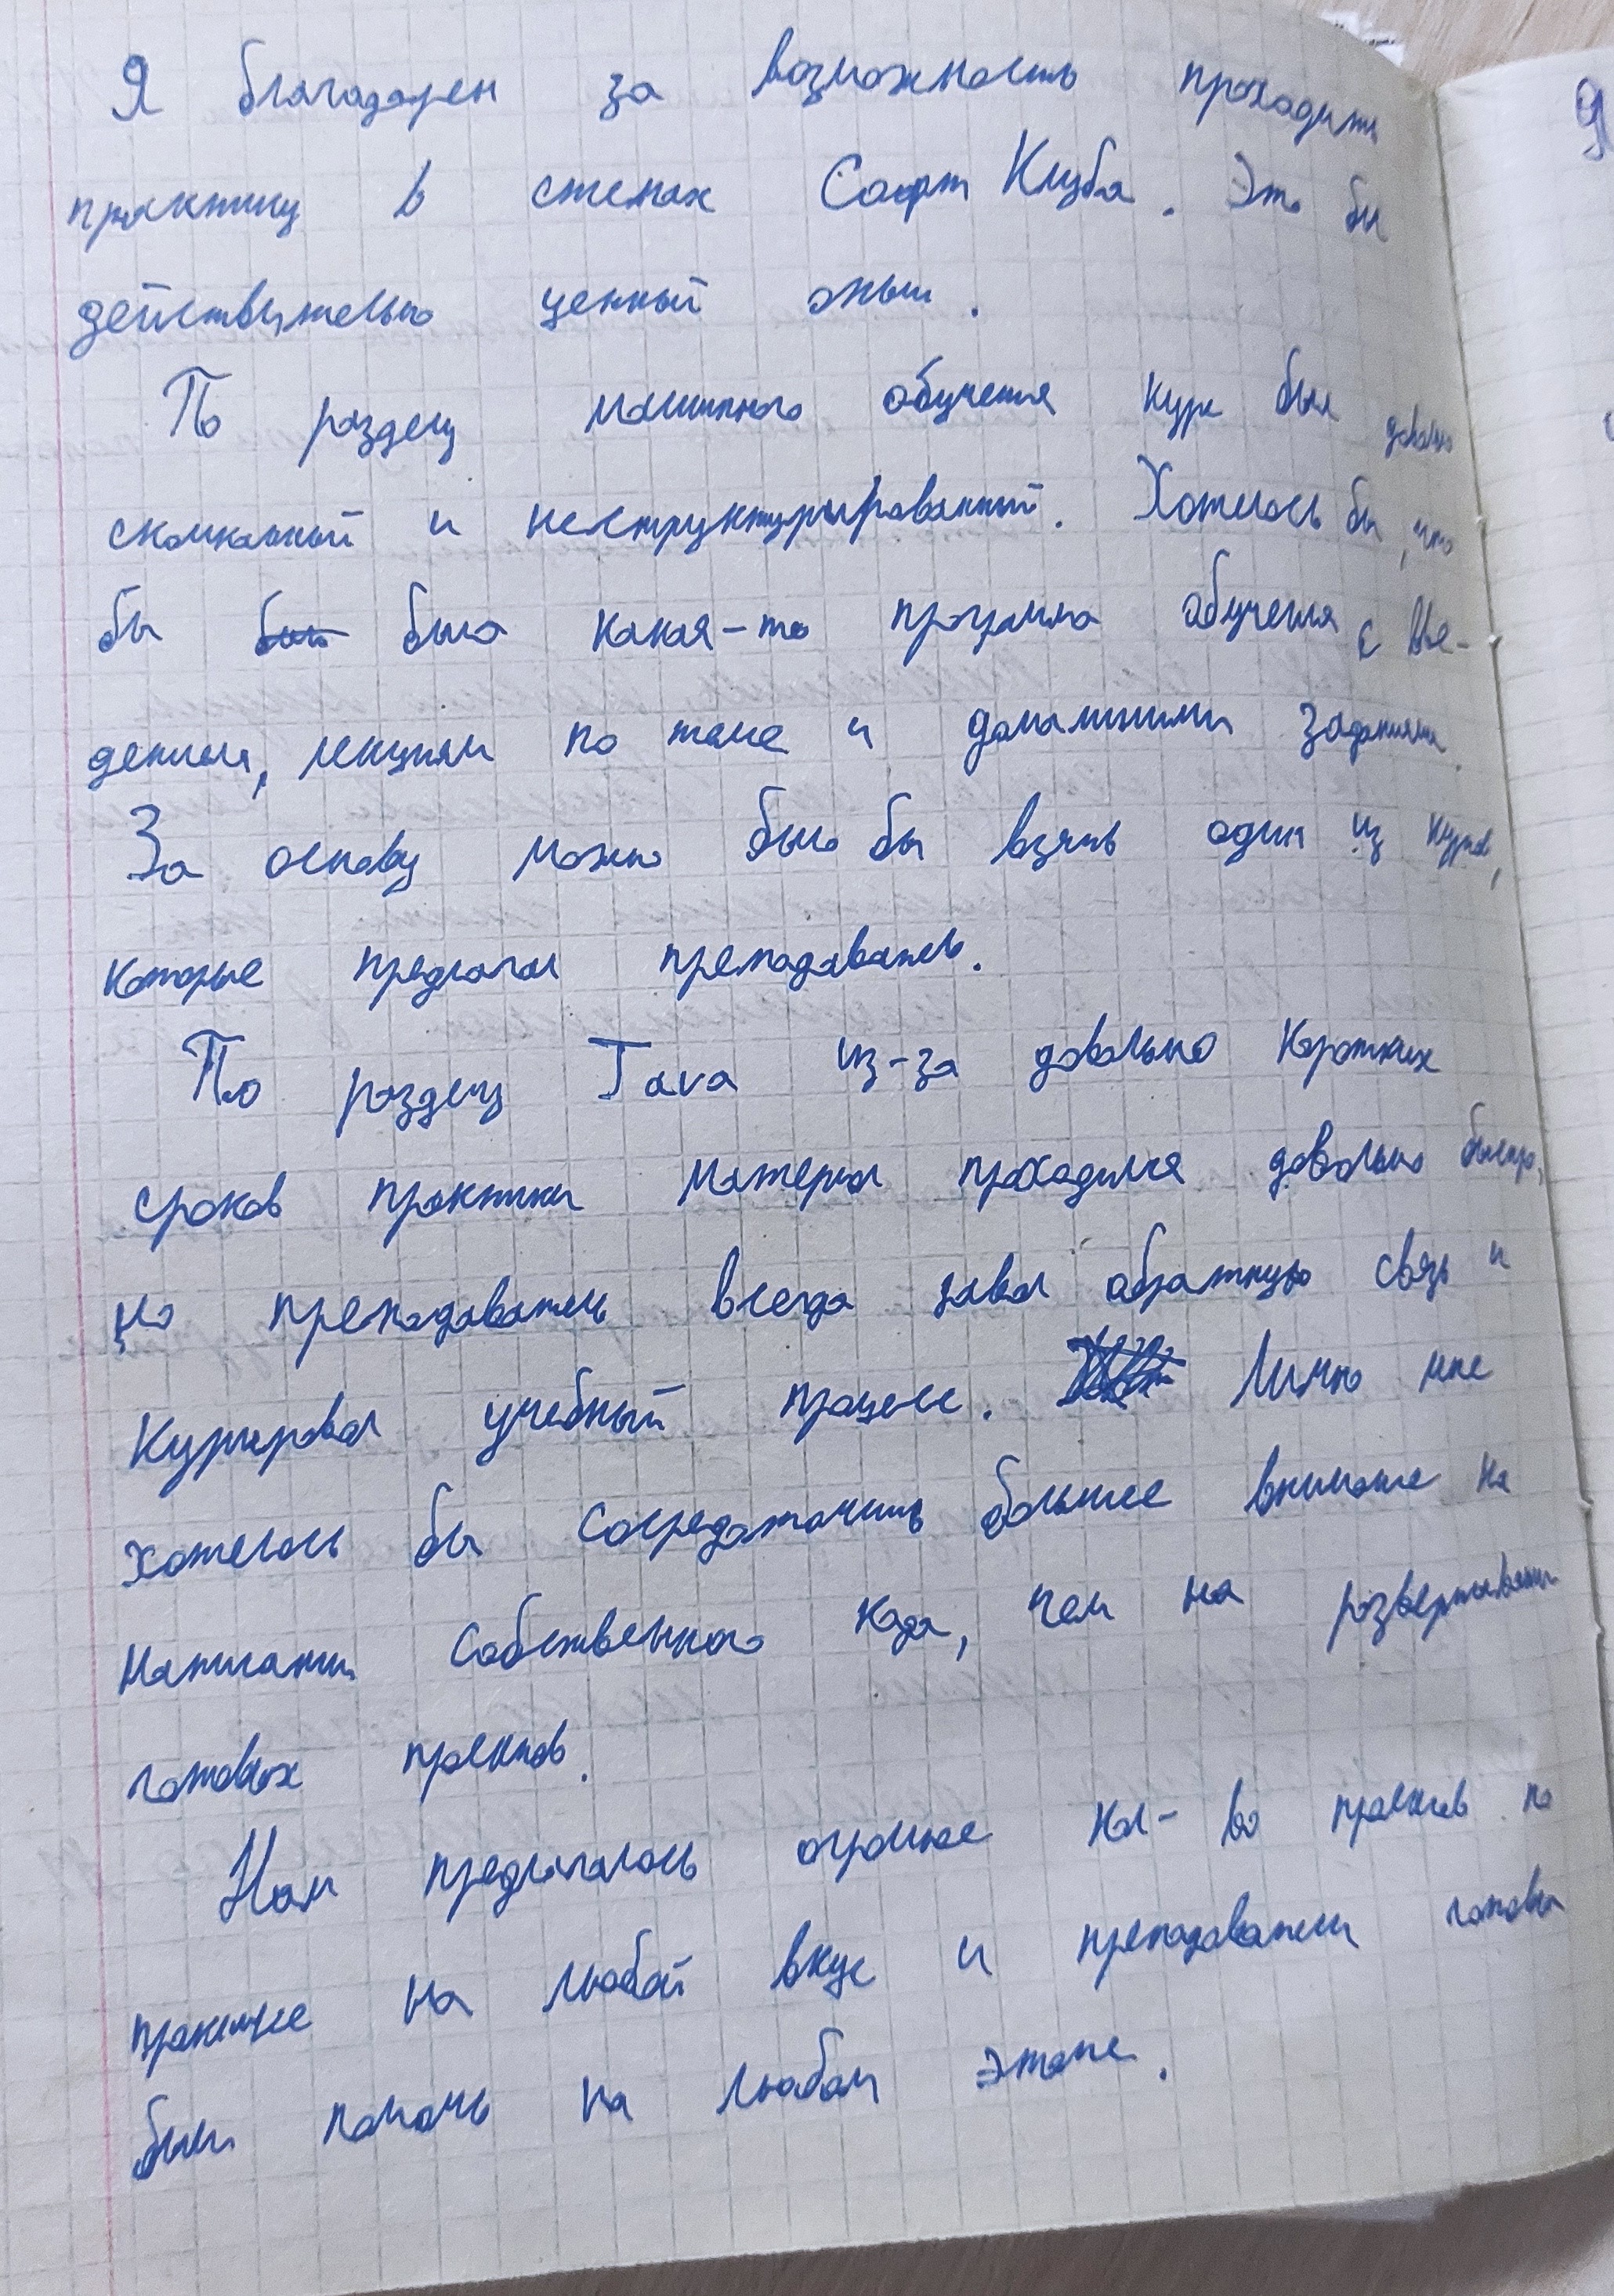 Я благодарен за возможность проходить
практику в стенах Софт Клуба. Это бы
действительно ценный опыт.
По разделу машинного обучения курс был довольно
скомканный и неструктурированный. Хотелось бы, что
бы была какая-то программа обучения с вве-
дением, лекциями по теме и домашними заданиями.
За основу можно было бы взять один из курсов,
которые предлагал преподаватель.
По разделу Java из-за довольно коротких
сроков практики материал проходился довольно быстро,
но преподаватель всегда давал обратную связь и
курировал учебный процесс. Лично мне
хотелось бы сосредоточить большее внимание на
написании собственного кода, чем на развертывании
готовых проектов.
Нам предлагалось огромное кол-во проектов по
практике на любой вкус и преподаватели готовы
были помочь на любом этапе.